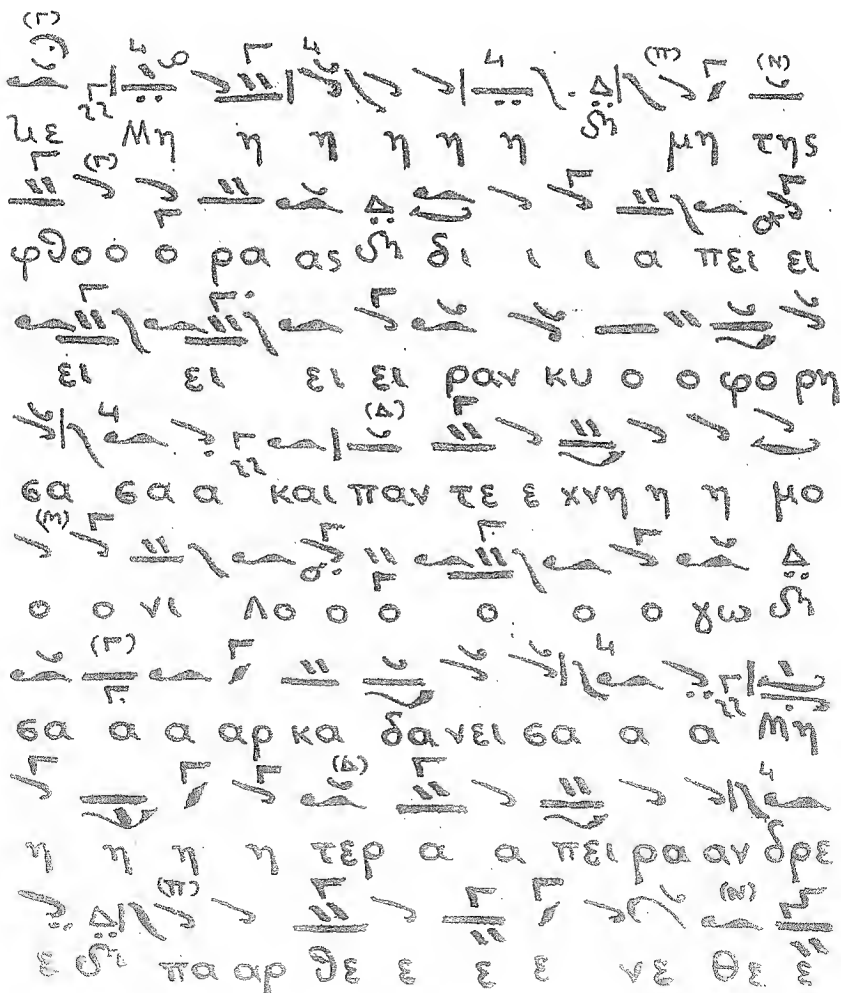 (Γ) (Π) (Ν)
κε Μη η η η η η μη της
(Γ)
φθο ο ο ρα ας δι ι ι α πει ει
ει ει ει ει ραν κυ ο ο φο ρη
(Δ)
σα σα α και παν τε ε χνη η η μο
(Π)
ο ο νι λο ο ο ο ο ο γω
(Γ)
σα α α αρ κα δα νει σα α α Μη
(Δ)
η η η η τερ α α πει ρα αν δρε
(Π) (Ν)
ε πα αρ θε ε ε ε νε Θε ε